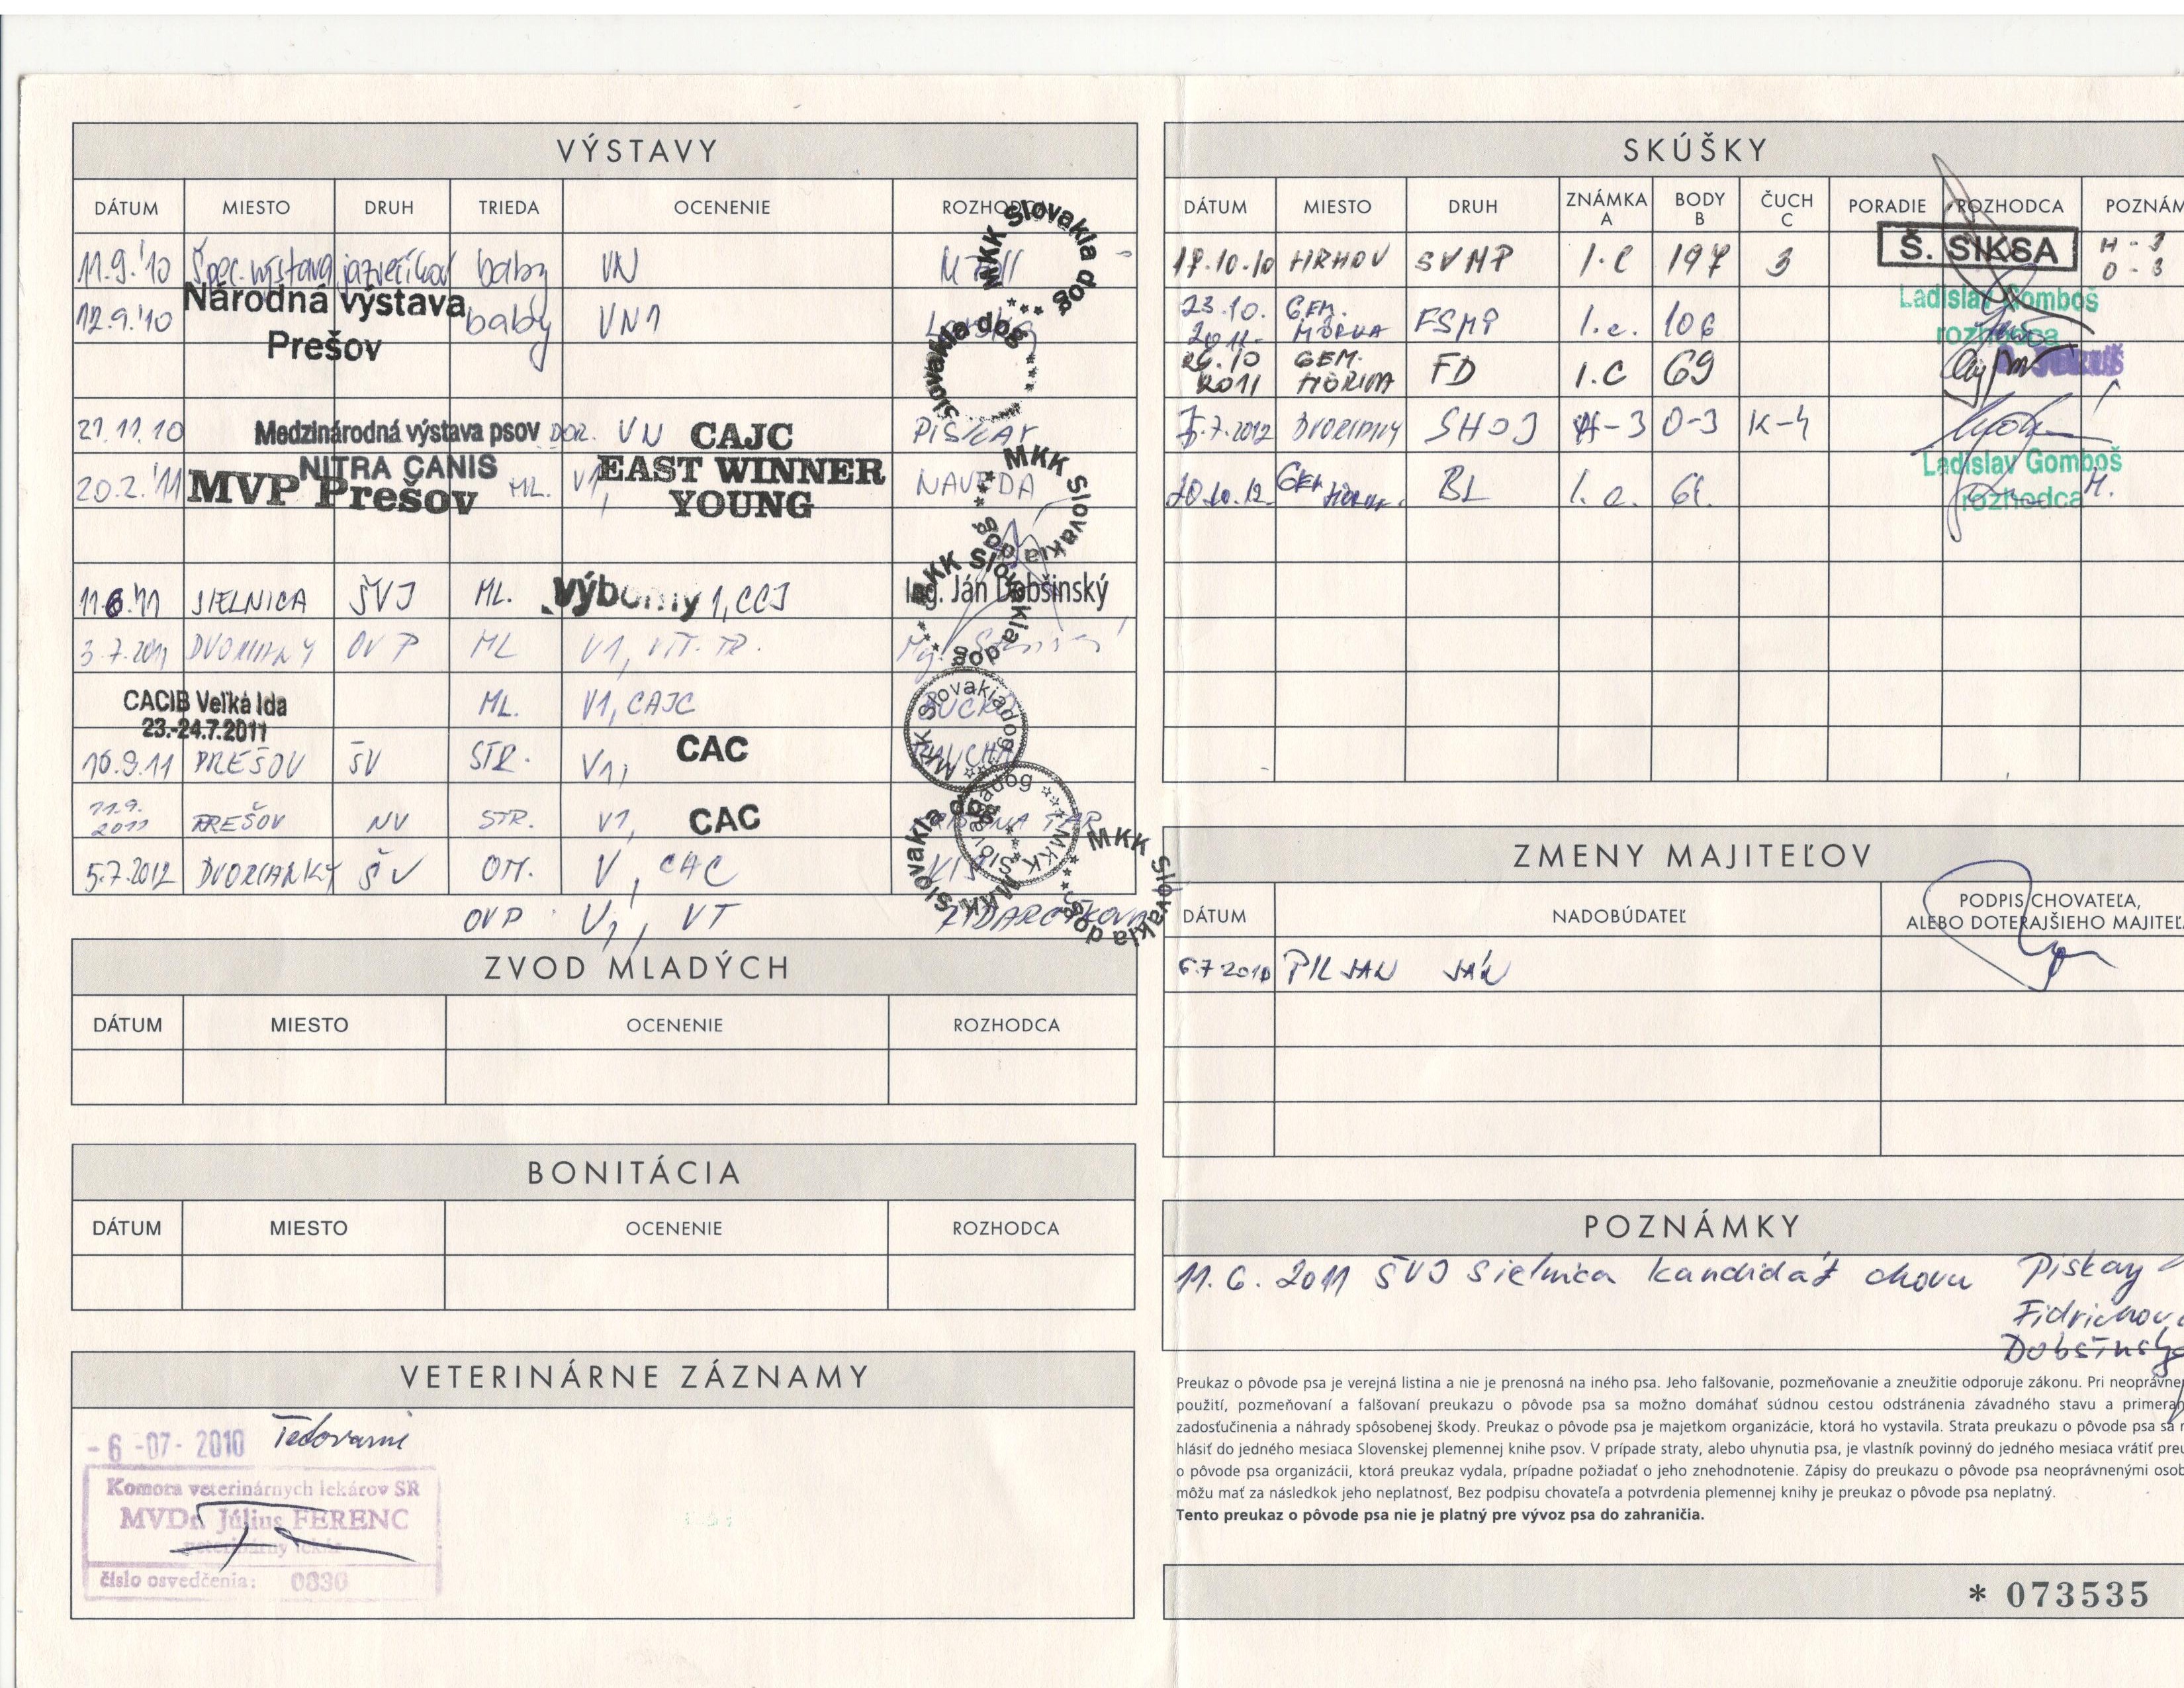 VÝSTAVY
DÁTUM MIESTO DRUH TRIEDA OCENENIE ROZHODCA
11.9.'10 Špec. výstava jazvečíkov baby VN
12.9.'10 Národná výstava baby VN1
Prešov
21.11.10 Medzinárodná výstava psov DOR. VN CAJC PISKAY
NITRA CANIS
20.2.'11 MVP Prešov ML. V1, EAST WINNER NAVEDA
YOUNG
11.6.'11 SIELNICA ŠVJ ML. Výborný 1, CCJ Ing. Ján Dobšinský
3.7.2011 DVORIANKY OVP ML V1, VÍT. TR.
CACIB Veľká Ida ML. V1, CAJC
23.-24.7.2011
10.9.11 PREŠOV ŠV STR. V1, CAC
11.9.
2011 PREŠOV NV STR. V1, CAC
5.7.2012 DVORIANKY ŠV OM. V, CAC
OVP V1, VT
MKK Slovakia dog
Slovakia dog
MKK Slovakia dog
MKK Slovakia dog
MKK Slovakiadog
MKK Slovakiadog
MKK Slovakia dog
MKK Slovakia dog
ZVOD MLADÝCH
DÁTUM MIESTO OCENENIE ROZHODCA
BONITÁCIA
DÁTUM MIESTO OCENENIE ROZHODCA
VETERINÁRNE ZÁZNAMY
-6-07-2010 Tetovanie
Komora veterinárnych lekárov SR
MVDr. Július FERENC
veterinárny lekár
číslo osvedčenia: 0830
SKÚŠKY
DÁTUM MIESTO DRUH ZNÁMKA A BODY B ČUCH C PORADIE ROZHODCA POZNÁM
17.10.10 HRHOV SVMP I.C 197 3 Š. SIKSA H-3
O-3
23.10.
2011 GEM.
HÔRKA FSMP I.c. 106 Ladislav Gomboš
rozhodca
26.10
2011 GEM.
HÔRKA FD I.C 69
7.7.2012 DVORIANKY SHDJ H-3 O-3 K-4
20.10.12 GEM. BL I.c. Ladislav Gomboš
rozhodca
ZMENY MAJITEĽOV
DÁTUM NADOBÚDATEĽ PODPIS CHOVATEĽA,
ALEBO DOTERAJŠIEHO MAJITEĽ
6.7.2010 PILJAN JÁN
POZNÁMKY
11.6.2011 ŠVJ Sielnica kandidát chovu Piskay
Fidrichov
Dobšinský
Preukaz o pôvode psa je verejná listina a nie je prenosná na iného psa. Jeho falšovanie, pozmeňovanie a zneužitie odporuje zákonu. Pri neoprávne
použití, pozmeňovaní a falšovaní preukazu o pôvode psa sa možno domáhať súdnou cestou odstránenia závadného stavu a primeran
zadosťučinenia a náhrady spôsobenej škody. Preukaz o pôvode psa je majetkom organizácie, ktorá ho vystavila. Strata preukazu o pôvode psa sa
hlásiť do jedného mesiaca Slovenskej plemennej knihe psov. V prípade straty, alebo uhynutia psa, je vlastník povinný do jedného mesiaca vrátiť preu
o pôvode psa organizácii, ktorá preukaz vydala, prípadne požiadať o jeho znehodnotenie. Zápisy do preukazu o pôvode psa neoprávnenými osob
môžu mať za následkok jeho neplatnosť, Bez podpisu chovateľa a potvrdenia plemennej knihy je preukaz o pôvode psa neplatný.
Tento preukaz o pôvode psa nie je platný pre vývoz psa do zahraničia.
* 073535